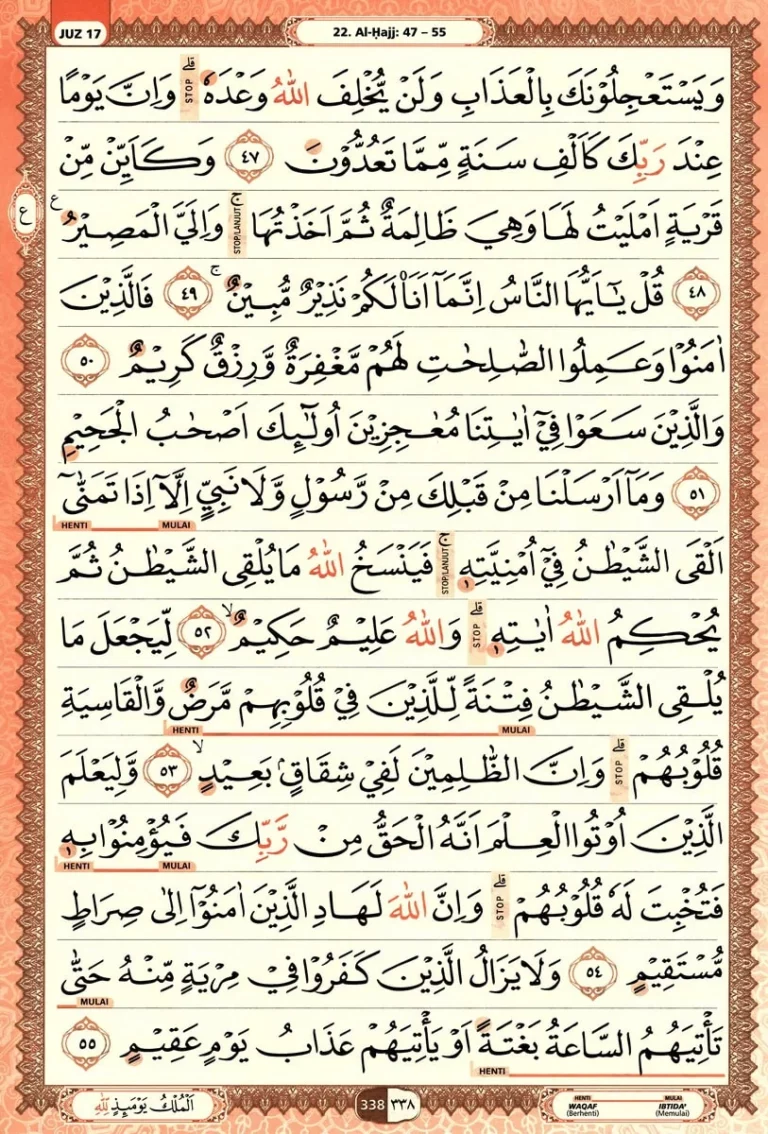 JUZ 17
22. Al-Ḥajj: 47 – 55
وَيَسْتَعْجِلُوْنَكَ بِالْعَذَابِ وَلَنْ يُّخْلِفَ اللّٰهُ وَعْدَهٗۗ STOP وَاِنَّ يَوْمًا
عِنْدَ رَبِّكَ كَاَلْفِ سَنَةٍ مِّمَّا تَعُدُّوْنَ ٤٧ وَكَاَيِّنْ مِّنْ
ع
قَرْيَةٍ اَمْلَيْتُ لَهَا وَهِيَ ظَالِمَةٌ ثُمَّ اَخَذْتُهَاۚ STOP/LANJUT وَاِلَيَّ الْمَصِيْرُ ع
٤٨ قُلْ يٰٓاَيُّهَا النَّاسُ اِنَّمَآ اَنَا۠ لَكُمْ نَذِيْرٌ مُّبِيْنٌۚ ٤٩ فَالَّذِيْنَ
اٰمَنُوْا وَعَمِلُوا الصّٰلِحٰتِ لَهُمْ مَّغْفِرَةٌ وَّرِزْقٌ كَرِيْمٌ ٥٠
وَالَّذِيْنَ سَعَوْا فِيْٓ اٰيٰتِنَا مُعٰجِزِيْنَ اُولٰۤىِٕكَ اَصْحٰبُ الْجَحِيْمِ
٥١ وَمَآ اَرْسَلْنَا مِنْ قَبْلِكَ مِنْ رَّسُوْلٍ وَّلَا نَبِيٍّ اِلَّآ اِذَا تَمَنّٰىٓ
HENTI MULAI
اَلْقَى الشَّيْطٰنُ فِيْٓ اُمْنِيَّتِهٖۚ STOP/LANJUT فَيَنْسَخُ اللّٰهُ مَا يُلْقِى الشَّيْطٰنُ ثُمَّ
يُحْكِمُ اللّٰهُ اٰيٰتِهٖۗ STOP وَاللّٰهُ عَلِيْمٌ حَكِيْمٌۙ ٥٢ لِّيَجْعَلَ مَا
يُلْقِى الشَّيْطٰنُ فِتْنَةً لِّلَّذِيْنَ فِيْ قُلُوْبِهِمْ مَّرَضٌ وَّالْقَاسِيَةِ
HENTI MULAI
قُلُوْبُهُمْۗ STOP وَاِنَّ الظّٰلِمِيْنَ لَفِيْ شِقَاقٍۢ بَعِيْدٍۙ ٥٣ وَّلِيَعْلَمَ
الَّذِيْنَ اُوْتُوا الْعِلْمَ اَنَّهُ الْحَقُّ مِنْ رَّبِّكَ فَيُؤْمِنُوْا بِهٖ
HENTI MULAI
فَتُخْبِتَ لَهٗ قُلُوْبُهُمْۗ STOP وَاِنَّ اللّٰهَ لَهَادِ الَّذِيْنَ اٰمَنُوْٓا اِلٰى صِرَاطٍ
مُّسْتَقِيْمٍ ٥٤ وَلَا يَزَالُ الَّذِيْنَ كَفَرُوْا فِيْ مِرْيَةٍ مِّنْهُ حَتّٰى
MULAI
تَأْتِيَهُمُ السَّاعَةُ بَغْتَةً اَوْ يَأْتِيَهُمْ عَذَابُ يَوْمٍ عَقِيْمٍ ٥٥
HENTI
اَلْمُلْكُ يَوْمَىِٕذٍ لِّلّٰهِ
338 ٣٣٨
HENTI MULAI
WAQAF IBTIDA'
(Berhenti) (Memulai)